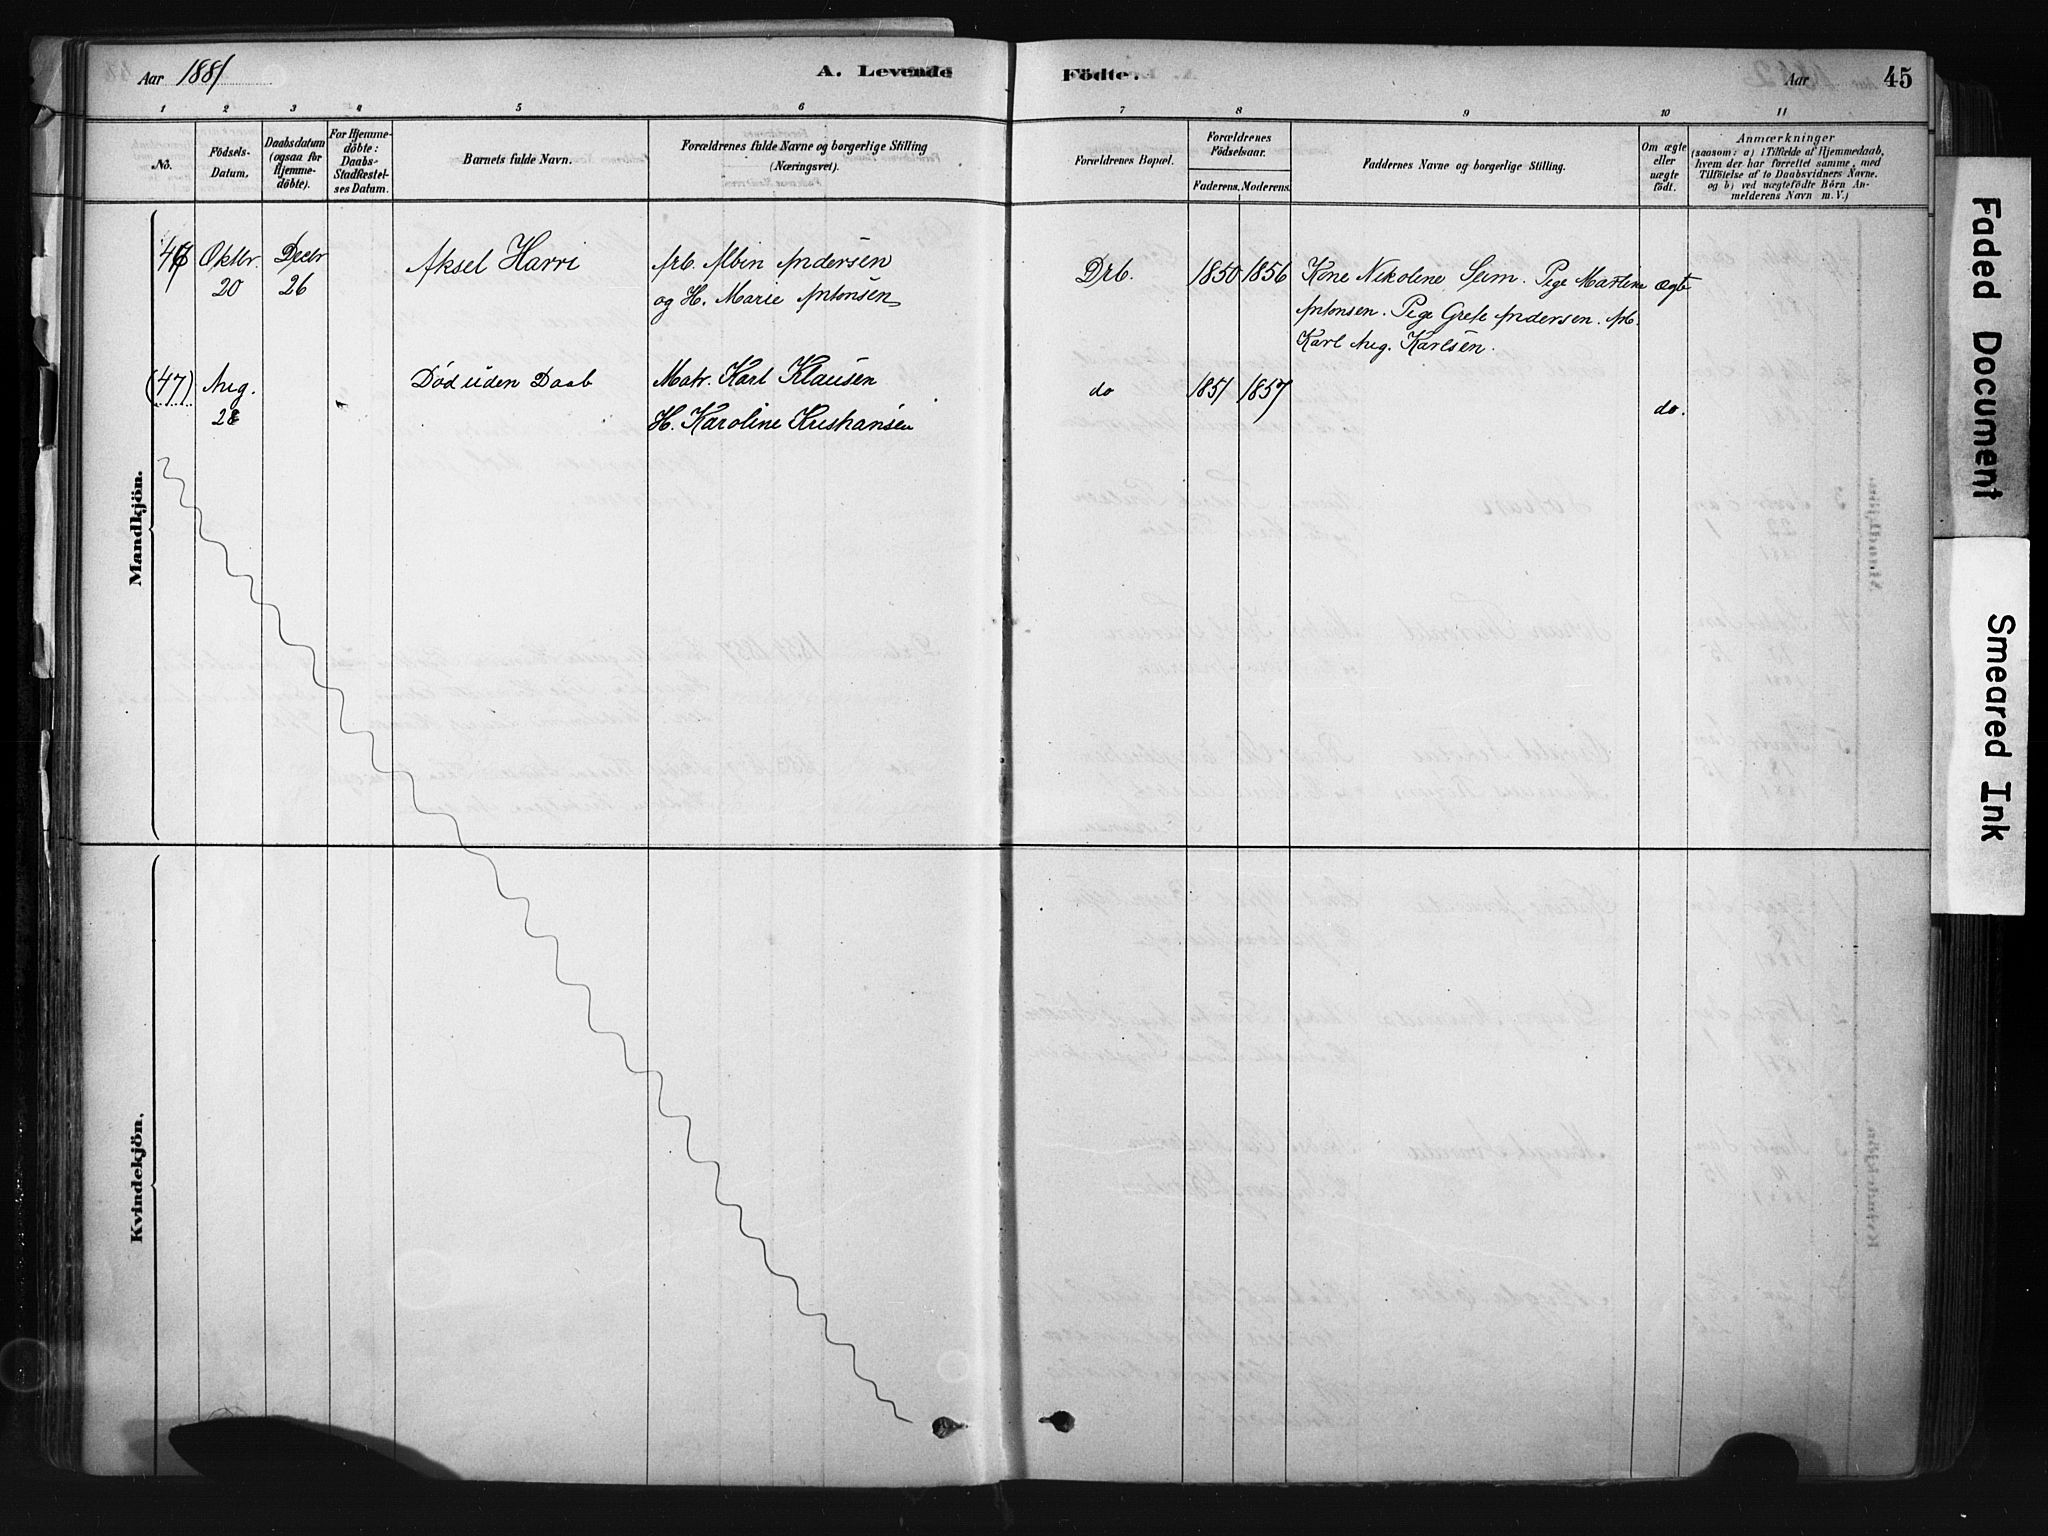 Aar 1881
A. Levende
Födte.
Aar
45
1
2
3
4
5
6
7
8
9
10
11
No.
Födsels-
Datum.
Daabsdatum
(ogsaa for
Hjemme-
döbte).
For Hjemme-
döbte:
Daabs-
Stadfæstel-
ses Datum.
Barnets fulde Navn.
Forældrenes fulde Navne og borgerlige Stilling
(Næringsvei).
Forældrenes Bopæl.
Forældrenes
Födselsaar.
Faderens.
Moderens.
Faddernes Navne og borgerlige Stilling.
Om ægte
eller
uægte
födt.
Anmærkninger
(saasom: a) i Tilfælde af Hjemmedaab,
hvem der har forrettet samme, med
Tilföielse af to Daabsvidners Navne.
og b) ved uægtefödte Börn An-
melderens Navn m. V.)
Mandkjön.
46 Oktbr. Decbr Aksel Harri Arb. Albin Andersen Drb. 1850 1856 Kone Nikoline Seim. Pige Martine ægte
20 26 og H. Marie Antonsen
Antonsen. Pige Grete Andersen. Arb.
Karl Aug. Karlsen.
(47) Aug. Død uden Daab Matr. Karl Klausen do 1851 1857 do.
28 H. Karoline Kristiansen
Kvindekjön.
Faded Document
Smeared Ink